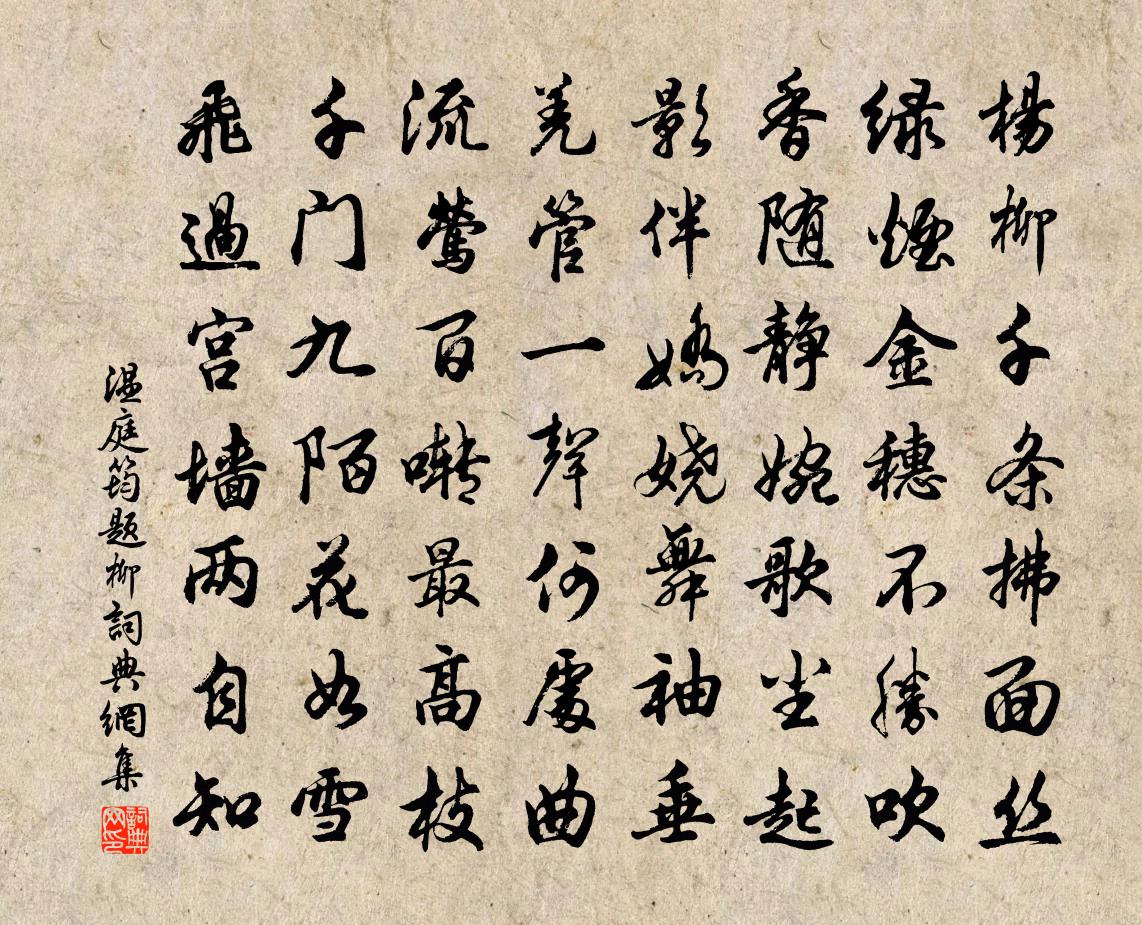 杨柳千条拂面丝
绿烟金穗不胜吹
香随静婉歌尘起
影伴娇娆舞袖垂
羌管一声何处曲
流莺百啭最高枝
千门九陌花如雪
飞過宫墙两自知
温庭筠题柳詞典網集
詞典网印